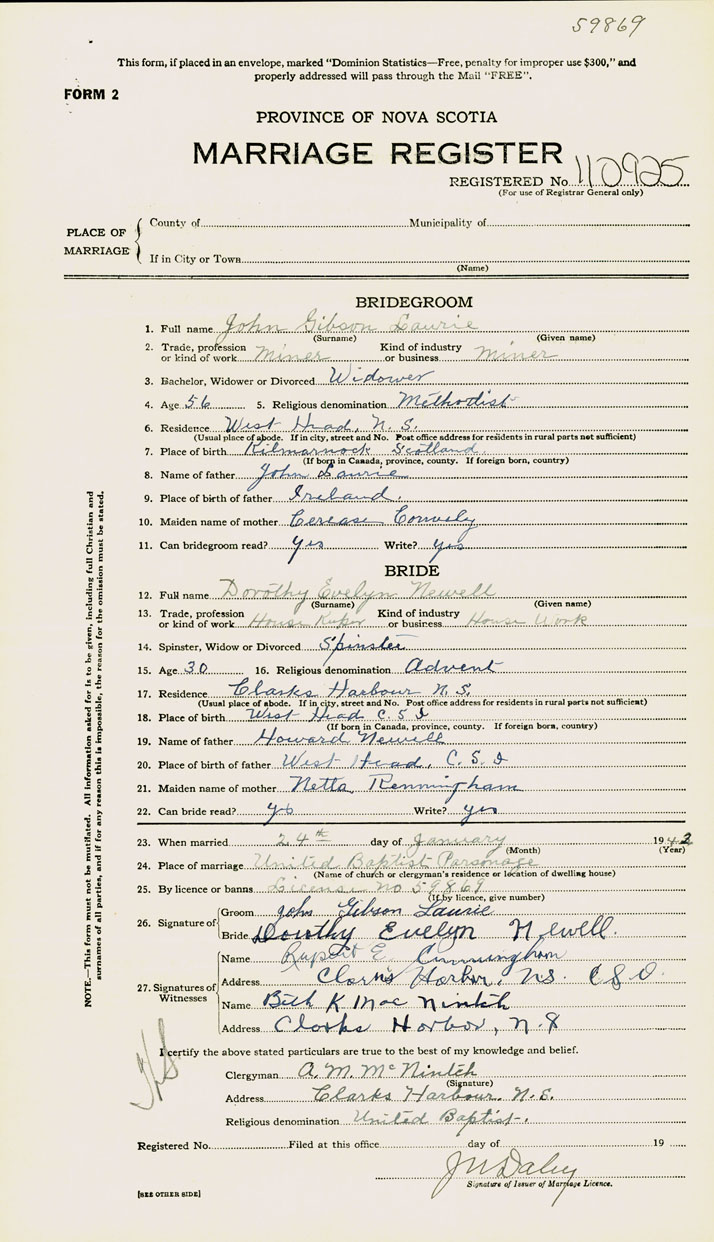 59869
This form, if placed in an envelope, marked "Dominion Statistics—Free, penalty for improper use $300," and
properly addressed will pass through the Mail "FREE".
FORM 2
PROVINCE OF NOVA SCOTIA
MARRIAGE REGISTER
REGISTERED No. 110925
(For use of Registrar General only)
PLACE OF MARRIAGE
County of Municipality of
If in City or Town
(Name)
BRIDEGROOM
1. Full name John Gibson Laurie
(Surname) (Given name)
2. Trade, profession or kind of work Miner Kind of industry or business Miner
3. Bachelor, Widower or Divorced Widower
4. Age 56 5. Religious denomination Methodist
6. Residence West Head, N. S.
(Usual place of abode. If in city, street and No. Post office address for residents in rural parts not sufficient)
7. Place of birth Kilmarnock Scotland
(If born in Canada, province, county. If foreign born, country)
8. Name of father John Laurie
9. Place of birth of father Ireland.
10. Maiden name of mother Cerease Convely
11. Can bridegroom read? yes Write? yes
BRIDE
12. Full name Dorothy Evelyn Newell
(Surname) (Given name)
13. Trade, profession or kind of work House Keper Kind of industry or business House Work
14. Spinster, Widow or Divorced Spinster
15. Age 30 16. Religious denomination Advent
17. Residence Clarks Harbour N. S.
(Usual place of abode. If in city, street and No. Post office address for residents in rural parts not sufficient)
18. Place of birth West Head C. S. I
(If born in Canada, province, county. If foreign born, country)
19. Name of father Howard Newell
20. Place of birth of father West Head, C. S. I
21. Maiden name of mother Netta Kenningham
22. Can bride read? yes Write? yes
23. When married 24th day of January 1942
(Month) (Year)
24. Place of marriage United Baptist Parsonage
(Name of church or clergyman's residence or location of dwelling house)
25. By licence or banns License no 59869
(If by licence, give number)
26. Signature of
Groom John Gibson Laurie
Bride Dorothy Evelyn Newell.
27. Signatures of Witnesses
Name Rupert E. Cunningham
Address Clarks Harbor, NS. C S I.
Name Beth K Mac Nintch
Address Clarks Harbor, N.S
I certify the above stated particulars are true to the best of my knowledge and belief.
Clergyman A. M. McNintch
(Signature)
Address Clarks Harbour. N. S.
Religious denomination United Baptist.
Registered No. Filed at this office day of 19
Signature of Issuer of Marriage Licence.
[SEE OTHER SIDE]
NOTE.—This form must not be mutilated. All information asked for is to be given, including full Christian and
surnames of all parties, and if for any reason this is impossible, the reason for the omission must be stated.